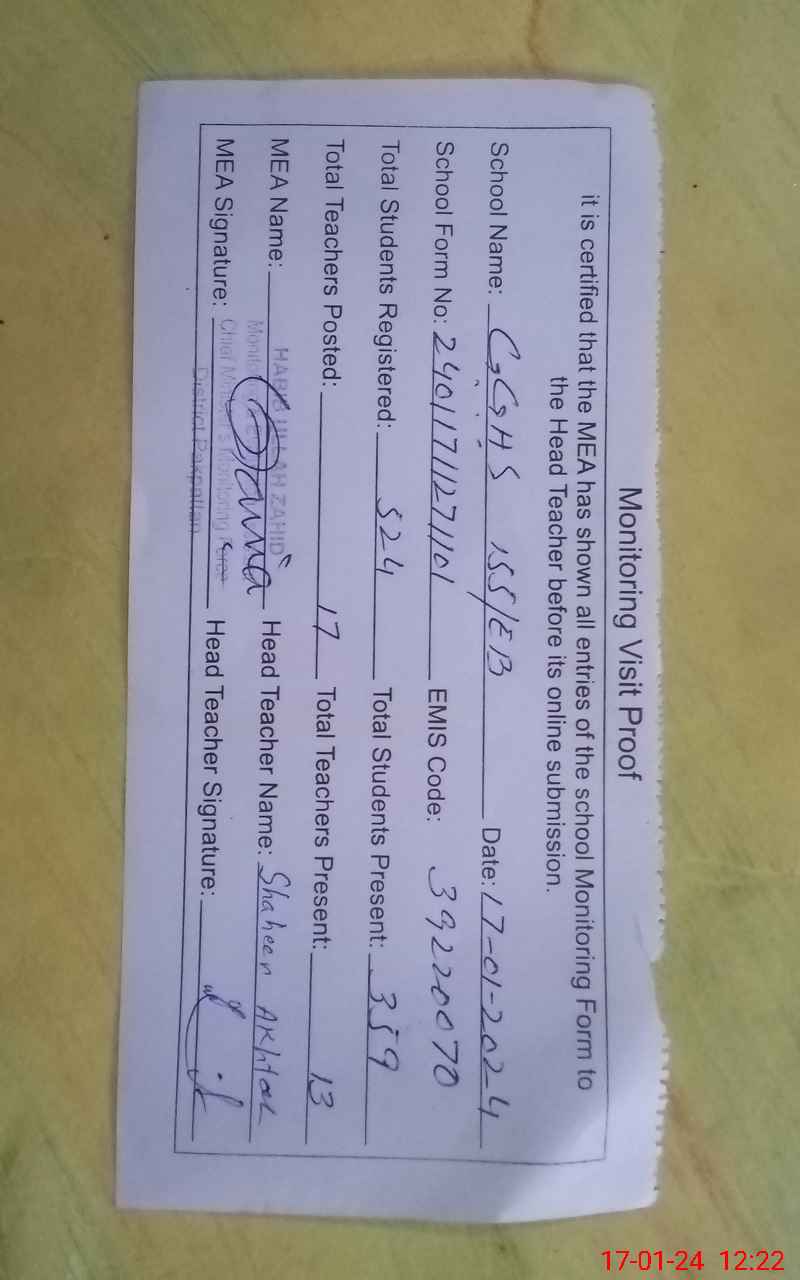 Monitoring Visit Proof
it is certified that the MEA has shown all entries of the school Monitoring Form to
the Head Teacher before its online submission.
School Name: GGHS 155/EB Date: 17-01-2024
School Form No: 24011711271101 EMIS Code: 39220070
Total Students Registered: 524 Total Students Present: 359
Total Teachers Posted: 17 Total Teachers Present: 13
MEA Name: HABIB ULLAH ZAHID Head Teacher Name: Shaheen Akhtar
MEA Signature: Chief Minister's Monitoring Force Head Teacher Signature:
District Pakpattan
17-01-24 12:22